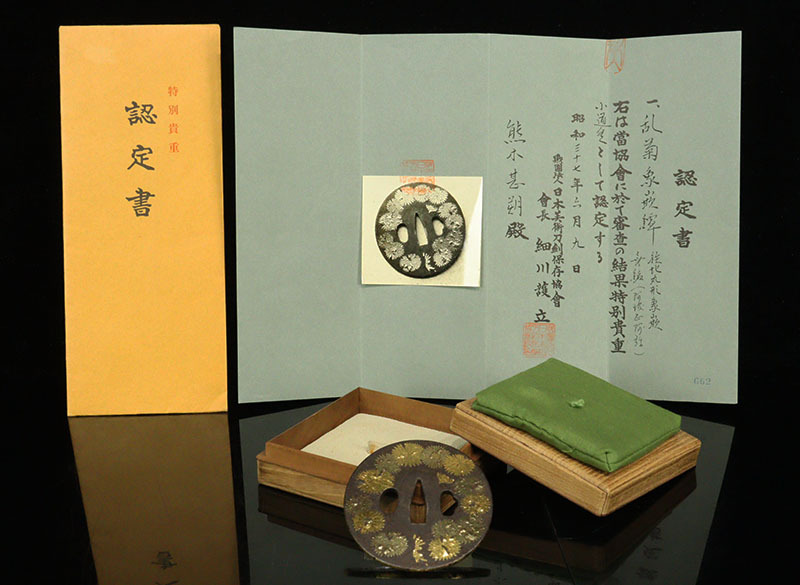 特別貴重
認定書
認定書
一、乱菊象嵌鐔
鉄地丸形象嵌
無銘（阿波正阿弥）
右は當協會に於て審査の結果特別貴重
小道具として認定する
昭和三十七年二月九日
財團法人日本美術刀剣保存協會
會長 細川護立
熊木甚朔殿
662